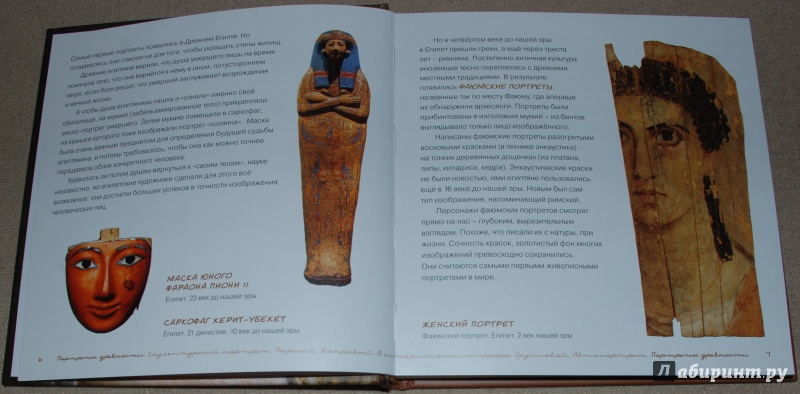 Самые первые портреты появились в Древнем Египте. Но
создавались они совсем не для того, чтобы украшать стены жилищ.
Древние египтяне верили, что душа умершего лишь на время
покинула тело, что она вернётся к нему в ином, потустороннем
мире, если боги решат, что умерший заслуживает возрождения
и вечной жизни.
А чтобы душа египтянина нашла и «узнала» именно своё
обиталище, на мумию (забальзамированное тело) прикрепляли
маску-портрет умершего. Затем мумию помещали в саркофаг,
на крышке которого тоже изображали портрет «хозяина». Маска
была очень важным предметом для определения будущей судьбы
египтянина, и потому требовалось, чтобы она как можно точнее
передавала облик конкретного человека.
Удавалось ли потом душам вернуться к «своим телам», науке
неизвестно, но египетские художники сделали для этого всё
возможное: они достигли больших успехов в точности изображения
человеческих лиц.
МАСКА ЮНОГО
ФАРАОНА ПИОНИ II
Египет. 23 век до нашей эры
САРКОФАГ ХЕРИТ-УБЕХЕТ
Египет. 21 династия. 10 век до нашей эры
6 Портреты древности
Но в четвёртом веке до нашей эры
в Египет пришли греки, а ещё через триста
лет – римляне. Постепенно античная культура
иноземцев тесно переплелась с древними
местными традициями. В результате
появились ФАЮМСКИЕ ПОРТРЕТЫ,
названные так по месту Фаюму, где впервые
их обнаружили археологи. Портреты были
прибинтованы в изголовьях мумий – из бинтов
выглядывало только лицо изображённого.
Написаны фаюмские портреты разогретыми
восковыми красками (в технике энкаустика)
на тонких деревянных дощечках (из платана,
липы, кипариса, кедра). Энкаустические краски
не были новостью, ими египтяне пользовались
ещё в 16 веке до нашей эры. Новым был сам
тип изображения, напоминающий римский.
Персонажи фаюмских портретов смотрят
прямо на нас – глубоким, выразительным
взглядом. Похоже, что писали их с натуры, при
жизни. Сочность красок, золотистый фон многих
изображений превосходно сохранились.
Они считаются самыми первыми живописными
портретами в мире.
ЖЕНСКИЙ ПОРТРЕТ
Фаюмский портрет. Египет. 2 век нашей эры
Групповой. Автопортрет. Портреты древности 7
Лабиринт.ру